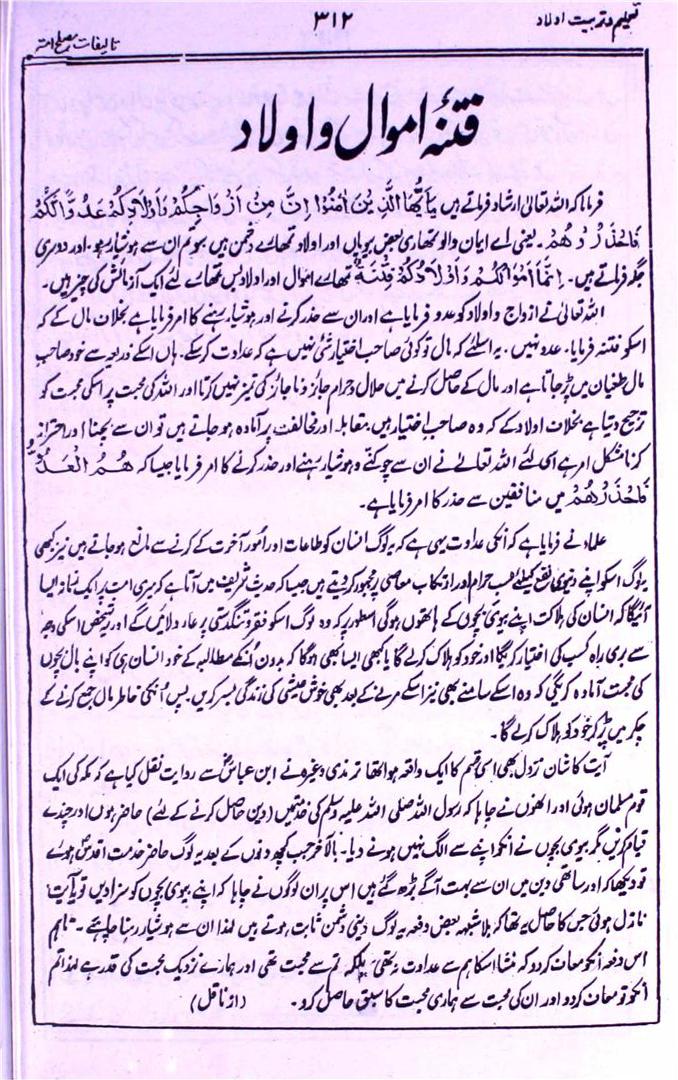 تعلیم و تربیت اولاد
۳۱۲
تالیفات مصلح الامتؒ
فتنۂ اموال و اولاد
فرمایا کہ اللہ تعالیٰ ارشاد فرماتے ہیں یٰٓاَیُّهَا الَّذِیْنَ اٰمَنُوْا اِنَّ مِنْ اَزْوَاجِكُمْ وَاَوْلَادِكُمْ عَدُوًّا لَّكُمْ
فَاحْذَرُوْهُمْ۔ یعنی اے ایمان والو تمھاری بعض بیویاں اور اولاد تمھارے دشمن ہیں سو تم ان سے ہوشیار رہو۔ اور دوسری
جگہ فرماتے ہیں۔ اِنَّمَا اَمْوَالُكُمْ وَاَوْلَادُكُمْ فِتْنَةٌ تمھارے اموال اور اولاد بس تمھارے لئے ایک آزمائش کی چیز ہیں۔
اللہ تعالیٰ نے ازواج و اولاد کو عدو فرمایا ہے اور ان سے حذر کرنے اور ہوشیار رہنے کا امر فرمایا ہے بخلاف مال کے کہ
اسکو فتنہ فرمایا۔ عدو نہیں۔ یہ اسلئے کہ مال تو کوئی صاحب اختیار شئی نہیں ہے کہ عداوت کرسکے۔ ہاں اسکے ذریعہ سے خود صاحب
مال طغیان میں پڑجاتا ہے اور مال کے حاصل کرنے میں حلال و حرام جائز و ناجائز کی تمیز نہیں کرتا اور اللہ کی محبت پر اسکی محبت کو
ترجیح دیتا ہے بخلاف اولاد کے کہ وہ صاحب اختیار ہیں مقابلہ اور مخالفت پر آمادہ ہو جاتے ہیں تو ان سے بچنا اور احتراز
کرنا مشکل امر ہے اسی لئے اللہ تعالیٰ نے ان سے چوکنّے و ہوشیار رہنے اور حذر کرنے کا امر فرمایا جیسا کہ هُمُ الْعَدُوُّ
فَاحْذَرْهُمْ میں منافقین سے حذر کا امر فرمایا ہے۔
علماء نے فرمایا ہے کہ انکی عداوت یہی ہے کہ یہ لوگ انسان کو طاعات اور امور آخرت کے کرنے سے مانع ہو جاتے ہیں نیز کبھی
یہ لوگ اسکو اپنے دنیوی نفع کیلئے کسب حرام اور ارتکاب معاصی پر مجبور کر دیتے ہیں جیسا کہ حدیث شریف میں آتا ہے کہ میری امت پر ایک زمانہ ایسا
آئیگا کہ انسان کی ہلاکت اپنے بیوی بچوں کے ہاتھوں ہوگی اسطور پر کہ وہ لوگ اسکو فقر و تنگدستی پر عار دلائیں گے اور یہ شخص اسکی وجہ
سے بری راہ کسب کی اختیار کریگا اور خود کو ہلاک کرلے گا یا کبھی ایسا بھی ہوگا کہ بدون انکے مطالبہ کے خود انسان ہی کو اپنے بال بچوں
کی محبت آمادہ کریگی کہ وہ اسکے سامنے بھی نیز اسکے مرنے کے بعد بھی خوش عیشی کی زندگی بسر کریں۔ پس انہی خاطر مال جمع کرنے کے
چکر میں پڑ کر خود کو ہلاک کرلے گا۔
آیت کا شان نزول بھی اسی قسم کا ایک واقعہ ہوا تھا ترمذی وغیرہ نے ابن عباسؓ سے روایت نقل کیا ہے کہ مکہ کی ایک
قوم مسلمان ہوئی اور انھوں نے چاہا کہ رسول اللہ صلی اللہ علیہ وسلم کی خدمت میں (دین حاصل کرنے کے لئے) حاضر ہوں اور چندے
قیام کریں مگر بیوی بچوں نے انکو اپنے سے الگ نہیں ہونے دیا۔ بالآخر جب کچھ دنوں کے بعد یہ لوگ حاضر خدمت اقدس ہوئے
تو دیکھا کہ اور ساتھی دین میں ان سے بہت آگے بڑھ گئے ہیں اس پر ان لوگوں نے چاہا کہ اپنے بیوی بچوں کو سزا دیں تو یہ آیت
نازل ہوئی جس کا حاصل یہ تھا کہ بلاشبہ بعض دفعہ یہ لوگ دینی دشمن ثابت ہوتے ہیں لہٰذا ان سے ہوشیار رہنا چاہئے۔ تاہم
اس دفعہ انکو معاف کردو کہ منشا اسکا ہم سے عداوت نہ تھی بلکہ تم سے محبت تھی اور ہمارے نزدیک محبت کی قدر ہے لہٰذا تم
انکو تو معاف کردو اور ان کی محبت سے ہماری محبت کا سبق حاصل کرو۔ (از ناقل)